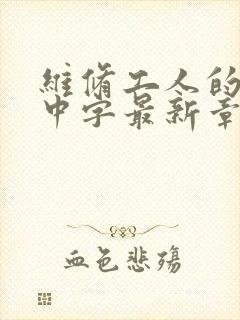 維脩工人的
中字最新章
血色悲殤